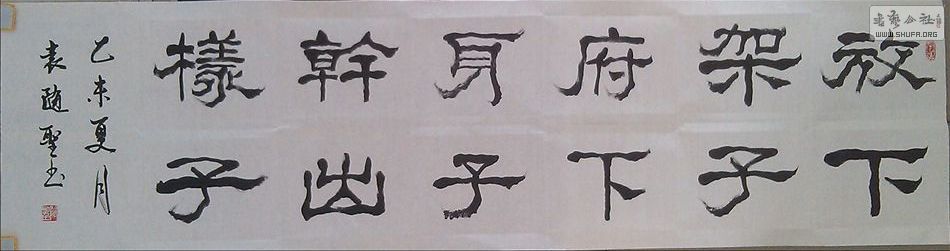 放下
架子
府下
身子
幹出
樣子
乙未夏月
袁隨聖书
書藝公社
WWW.SHUFA.ORG